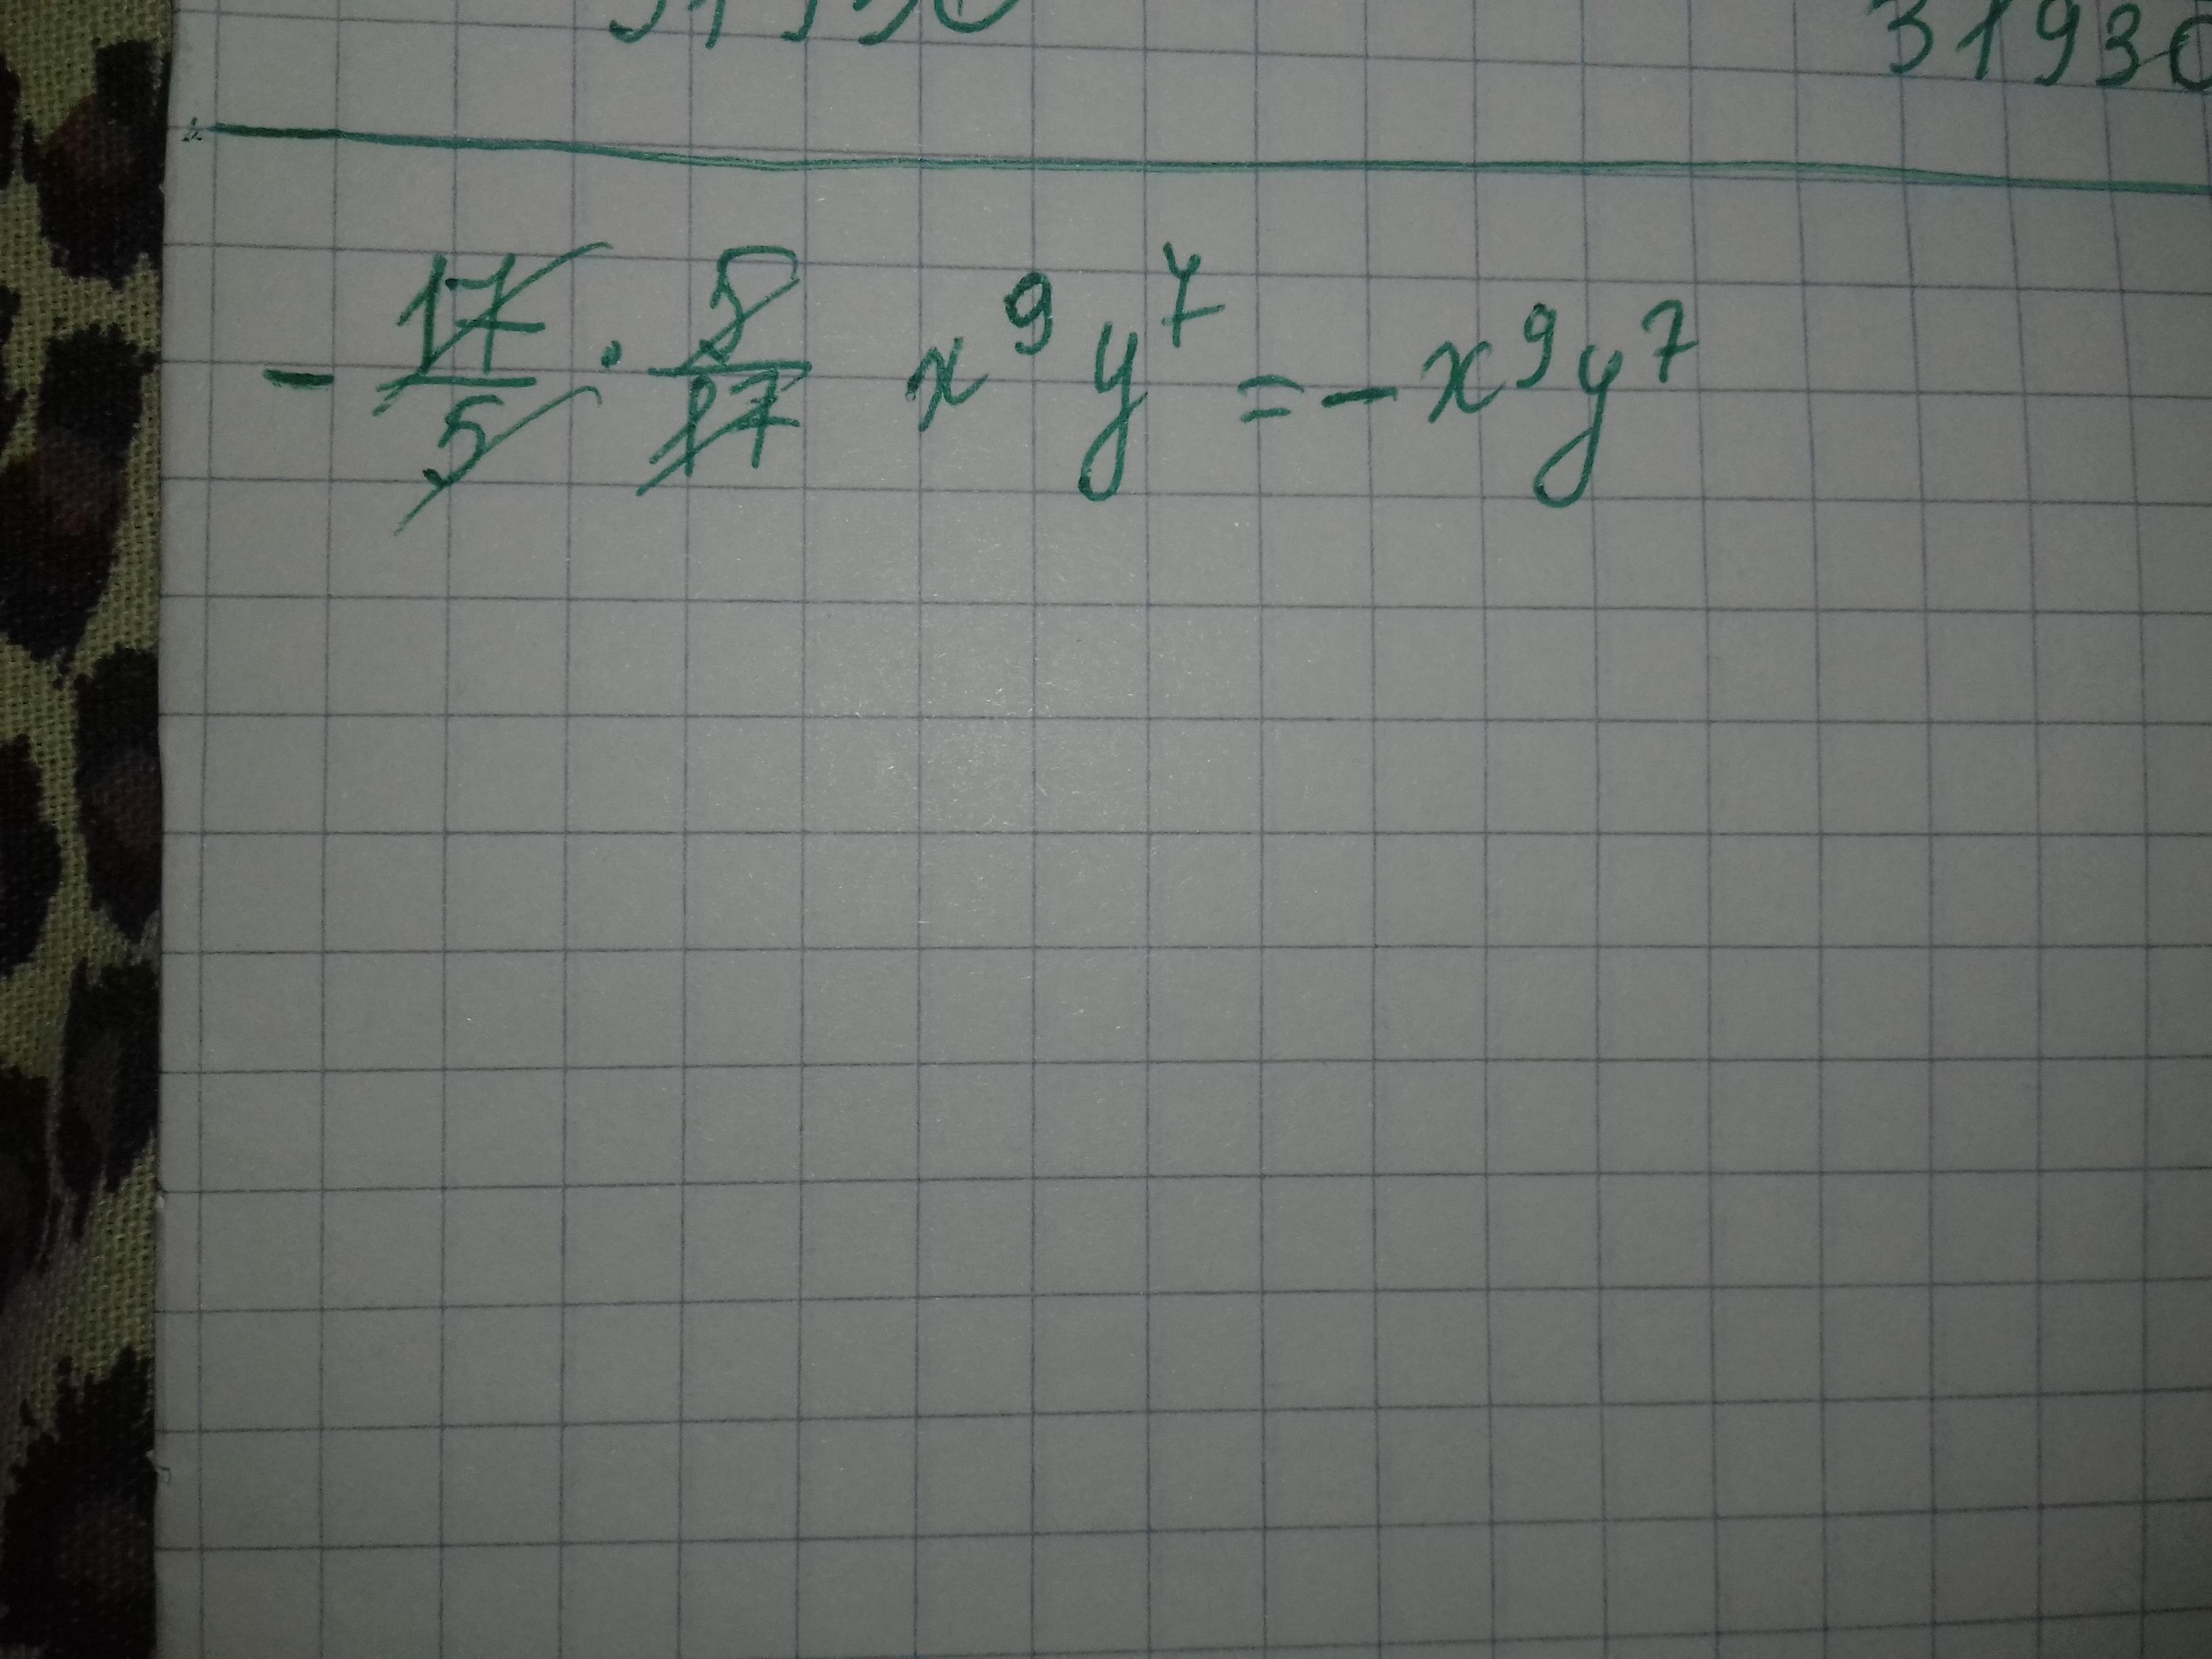 31930
- 17/5 · 5/17 x⁹y⁷ = - x⁹y⁷